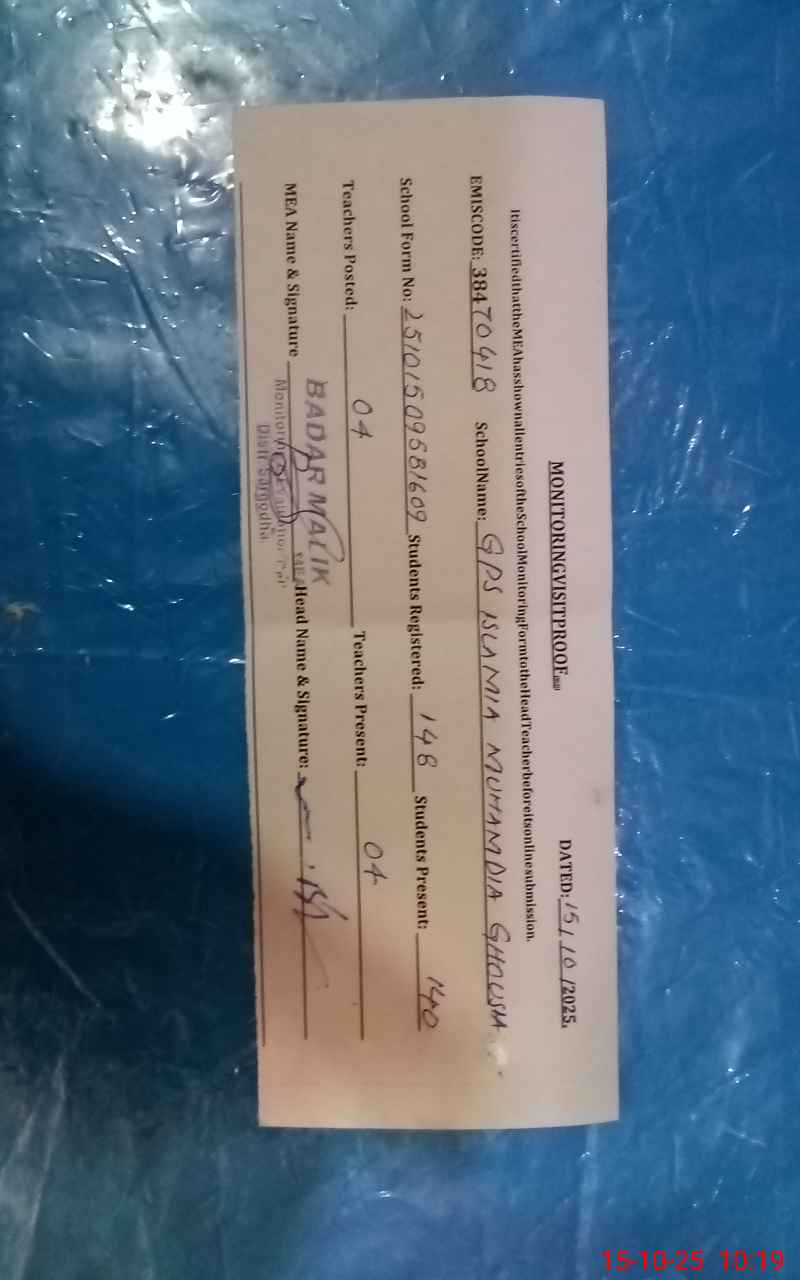 MONITORINGVISITPROOF DATED: 15/10/2025.
ItiscertifiedthattheMEAhasshownallentriesoftheSchoolMonitoringFormtotheHeadTeacherbeforeitsonlinesubmission.
EMISCODE: 38470418 SchoolName: GPS ISLAMIA MUHAMDIA GHOUSIA
School Form No: 25101509581609 Students Registered: 148 Students Present: 140
Teachers Posted: 04 Teachers Present: 04
MEA Name & Signature BADAR MALIK MEA Head Name & Signature:
Distt Sargodha.
15-10-25 10:19